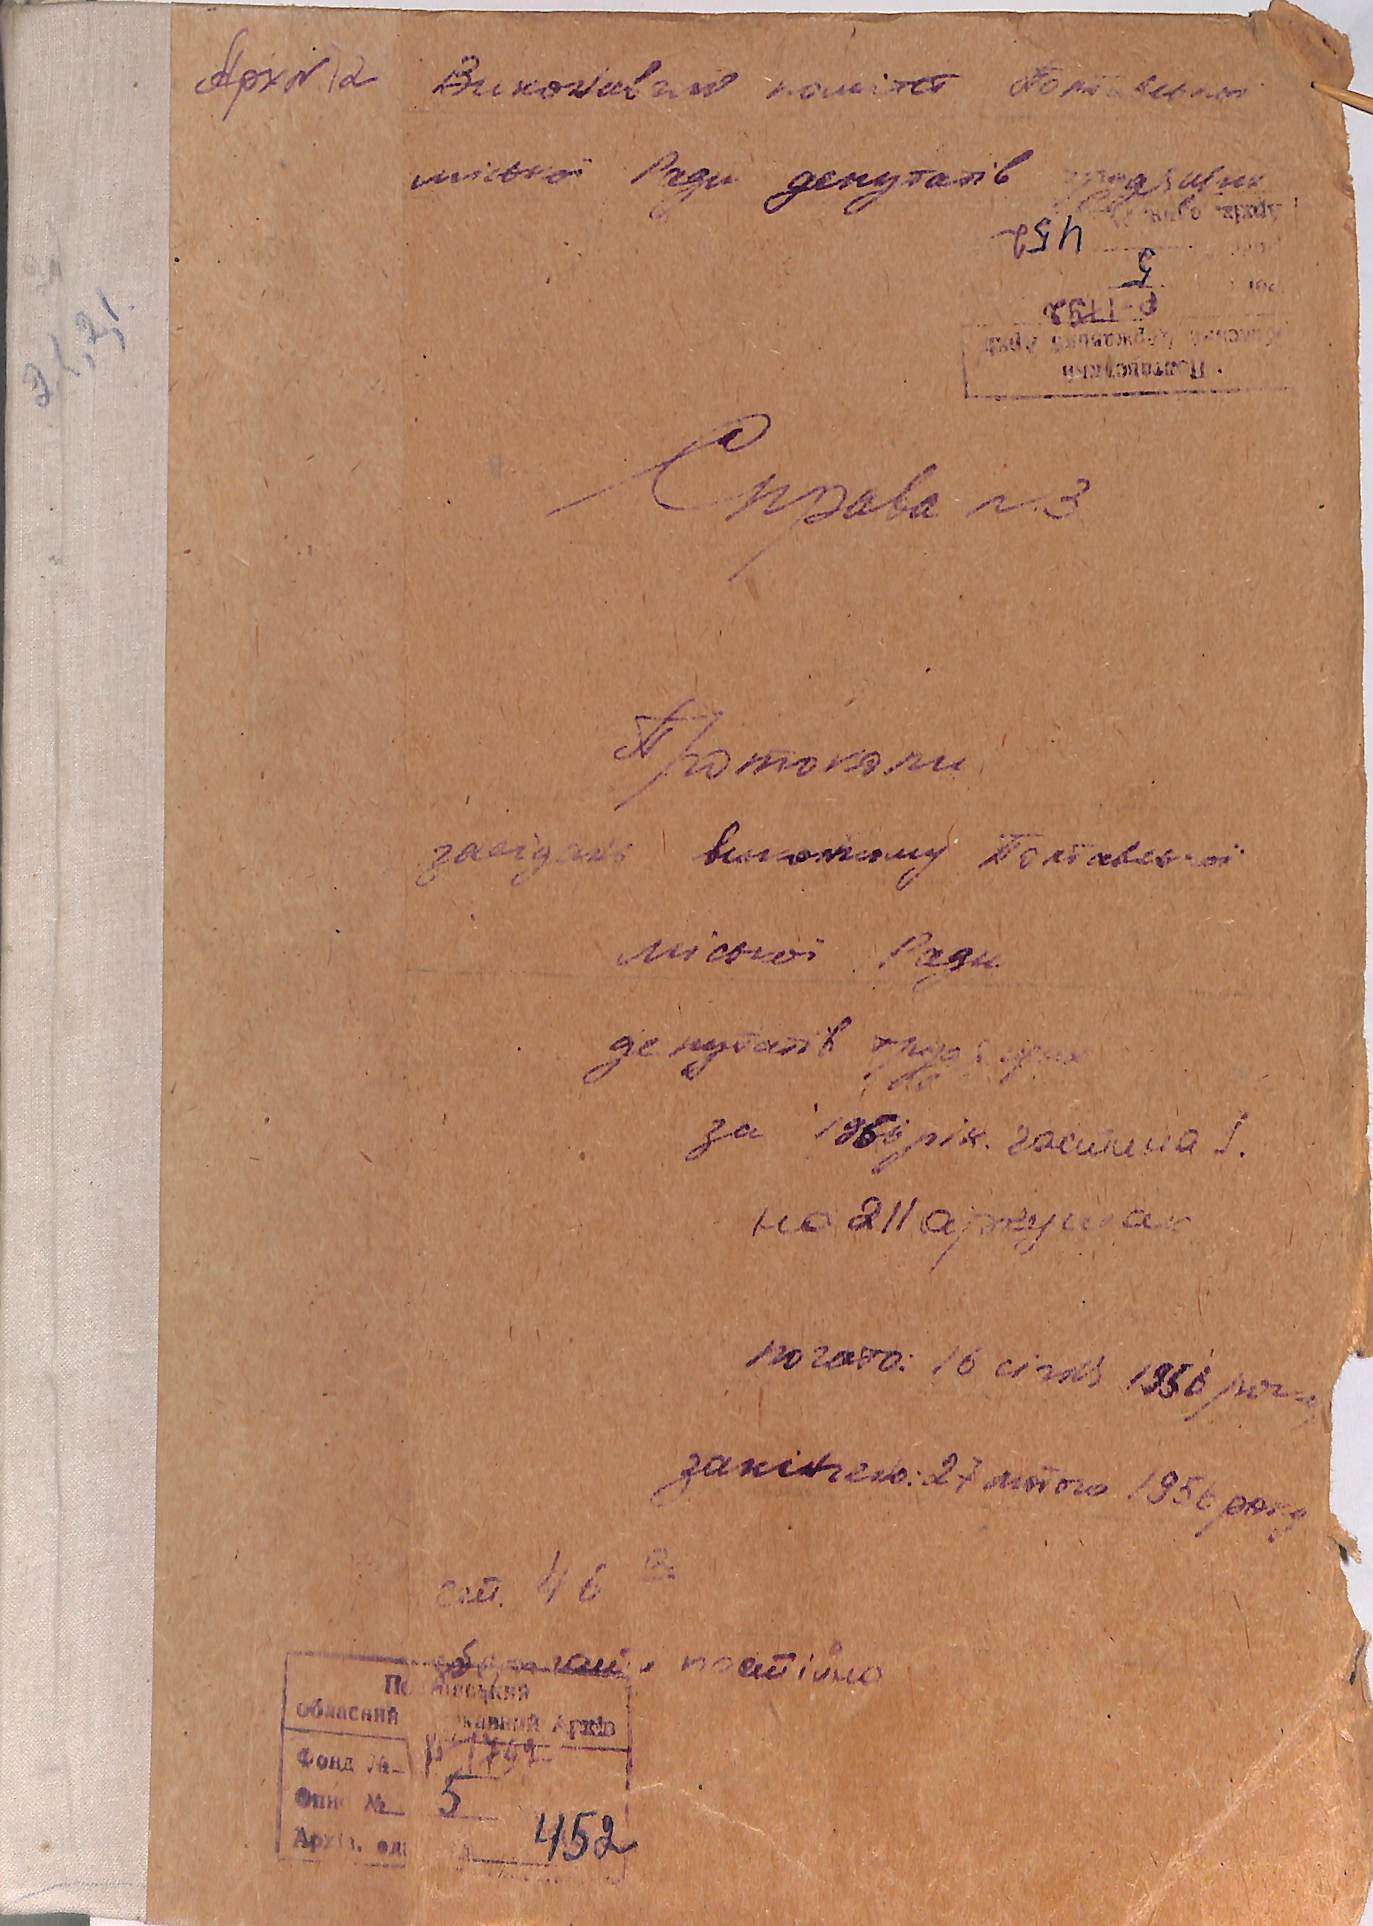 Арх № 12
Виконавчий комітет Полтавської
міської Ради депутатів трудящих
Полтавський
Обласний Державний Архів
Р-1792
5
452
Архів. один.
Справа № 3
Протоколи
засідань виконкому Полтавської
міської Ради
депутатів трудящих
за 1956 рік. частина I.
на 211 аркушах
почато: 16 січня 1956 року
закінчено: 27 лютого 1956 року
ст. 46
зберігати постійно
Полтавський
Обласний Державний Архів
Фонд № Р-1792
Опис № 5
Архів. од. 452